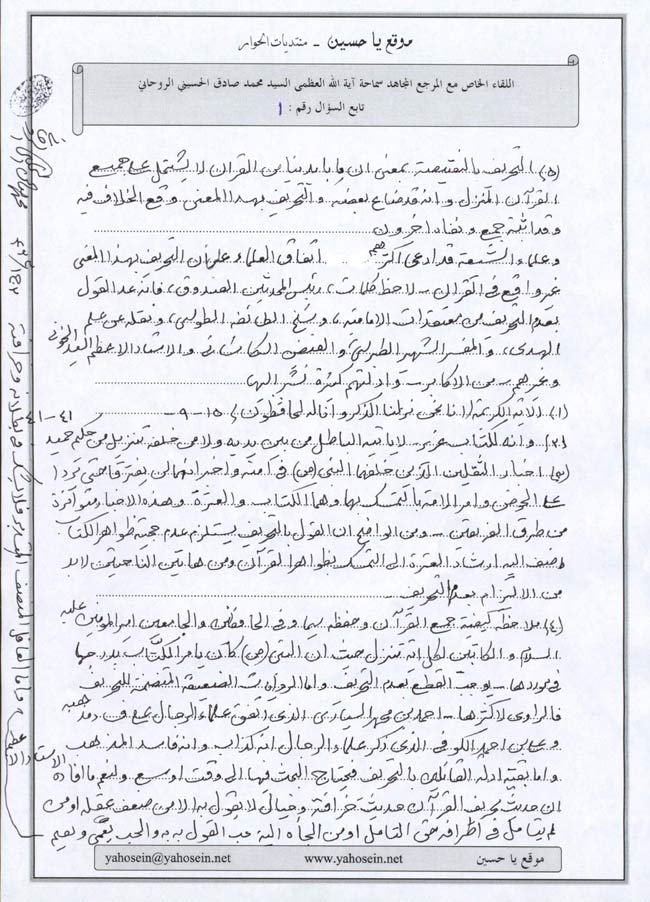 موقع يا حسين - منتديات الحوار
اللقاء الخاص مع المرجع المجاهد سماحة آية الله العظمى السيد محمد صادق الحسيني الروحاني
تابع السؤال رقم : ١
(٥) التحريف بالنقيصة بمعنى ان ما بايدينا من القرآن لا يشتمل على جميع
القرآن المنزل و انه قد ضاع بعضه و التحريف بهذا المعنى وقع الخلاف فيه
و قد اثبته جمع و نفاه آخرون
و علماء الشيعة قد ادعى اكثرهم اتفاق العلماء على ان التحريف بهذا المعنى
غير واقع في القرآن - لاحظ كلمات، رئيس المحدثين الصدوق، فانه عد القول
بعدم التحريف من معتقدات الامامية، و شيخ الطائفة الطوسي، و نقله عن علم
الهدى، و المفسر الشهير الطبرسي و الفيض الكاشاني و الاستاذ الاعظم السيد الخوئي
و غيرهم - من الاكابر - و ادلتهم كثيرة نشير اليها
(١) الآية الكريمة / انا نحن نزلنا الذكر و انا له لحافظون / ١٥ - ٩
(٢) و انه لكتاب عزيز - لا ياتيه الباطل من بين يديه ولا من خلفه تنزيل من حكيم حميد
٤١ - ٤١
(٣) اخبار الثقلين الذين خلفهما النبي (ص) في امته و اخبر انهما لن يفترقا حتى يردا
على الحوض و امر الامة بالتمسك بهما و هما الكتاب و العترة و هذه الاخبار متواترة
من طرق الفريقين - و من الواضح ان القول بالتحريف يستلزم عدم حجية ظواهر الكتاب
اضف اليه ارشاد العترة الى التمسك بظواهر القرآن و من هاتين الناحيتين لابد
من الالتزام بعدم التحريف
(٤) ملاحظة كيفية جمع القرآن و حفظه سيما و في الحافظين و الجامعين امير المؤمنين عليه
السلام و الكاتبين لكل آية تنزل حيث ان النبي (ص) كان يامر الكتّاب بدرجها
في موردها - يوجب القطع بعدم التحريف و اما الروايات الضعيفة المتضمنة للتحريف
فالراوي لاكثرها - احمد بن محمد السياري الذي اتفق علماء الرجال على فساد مذهبه
و علي بن احمد الكوفي الذي ذكر علماء الرجال انه كذاب و انه فاسد المذهب
و اما بقية ادلة القائلين بالتحريف فيحتاج البحث فيها الى وقت اوسع و لنعم ما افاده
الاستاذ الاعظم
ان حديث تحريف القرآن حديث خرافة و خيال لا يقول به الا من ضعف عقله او من
لم يتامل في اطرافه حق التامل او من الجأه اليه حب القول به و الحب يعمي و يصم
و اما العاقل المنصف المتدبر فلا يشك في بطلانه و خرافته
موقع يا حسين
www.yahosein.net
yahosein@yahosein.net